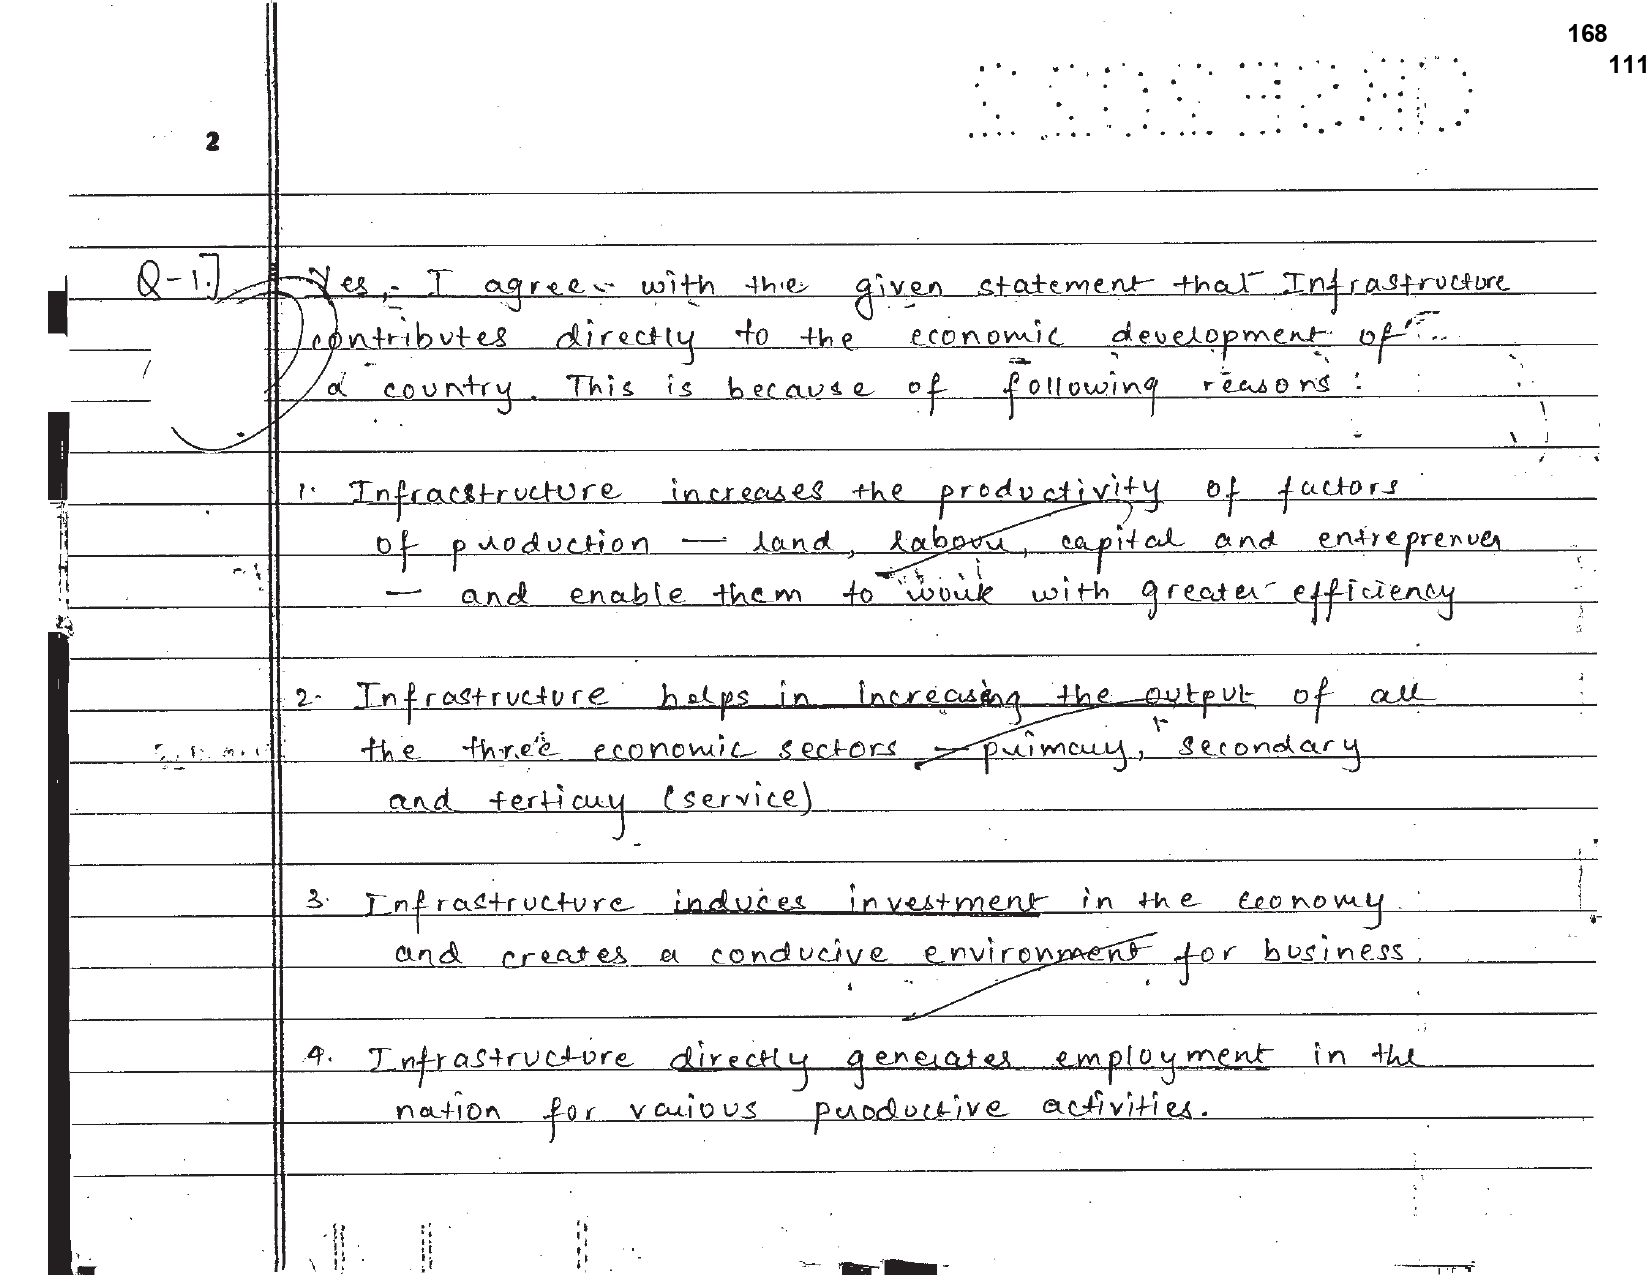 168
111
2
Q-1.] Yes, I agree with the given statement that Infrastructure
contributes directly to the economic development of
a country. This is because of following reasons:
1. Infracstructure increases the productivity of factors
of production — land, labour, capital and entreprenuer
— and enable them to work with greater efficiency
2. Infrastructure helps in increasing the output of all
the three economic sectors — primary, secondary
and tertiary (service)
3. Infrastructure induces investment in the economy
and creates a conducive environment for business.
4. Infrastructure directly generates employment in the
nation for various productive activities.